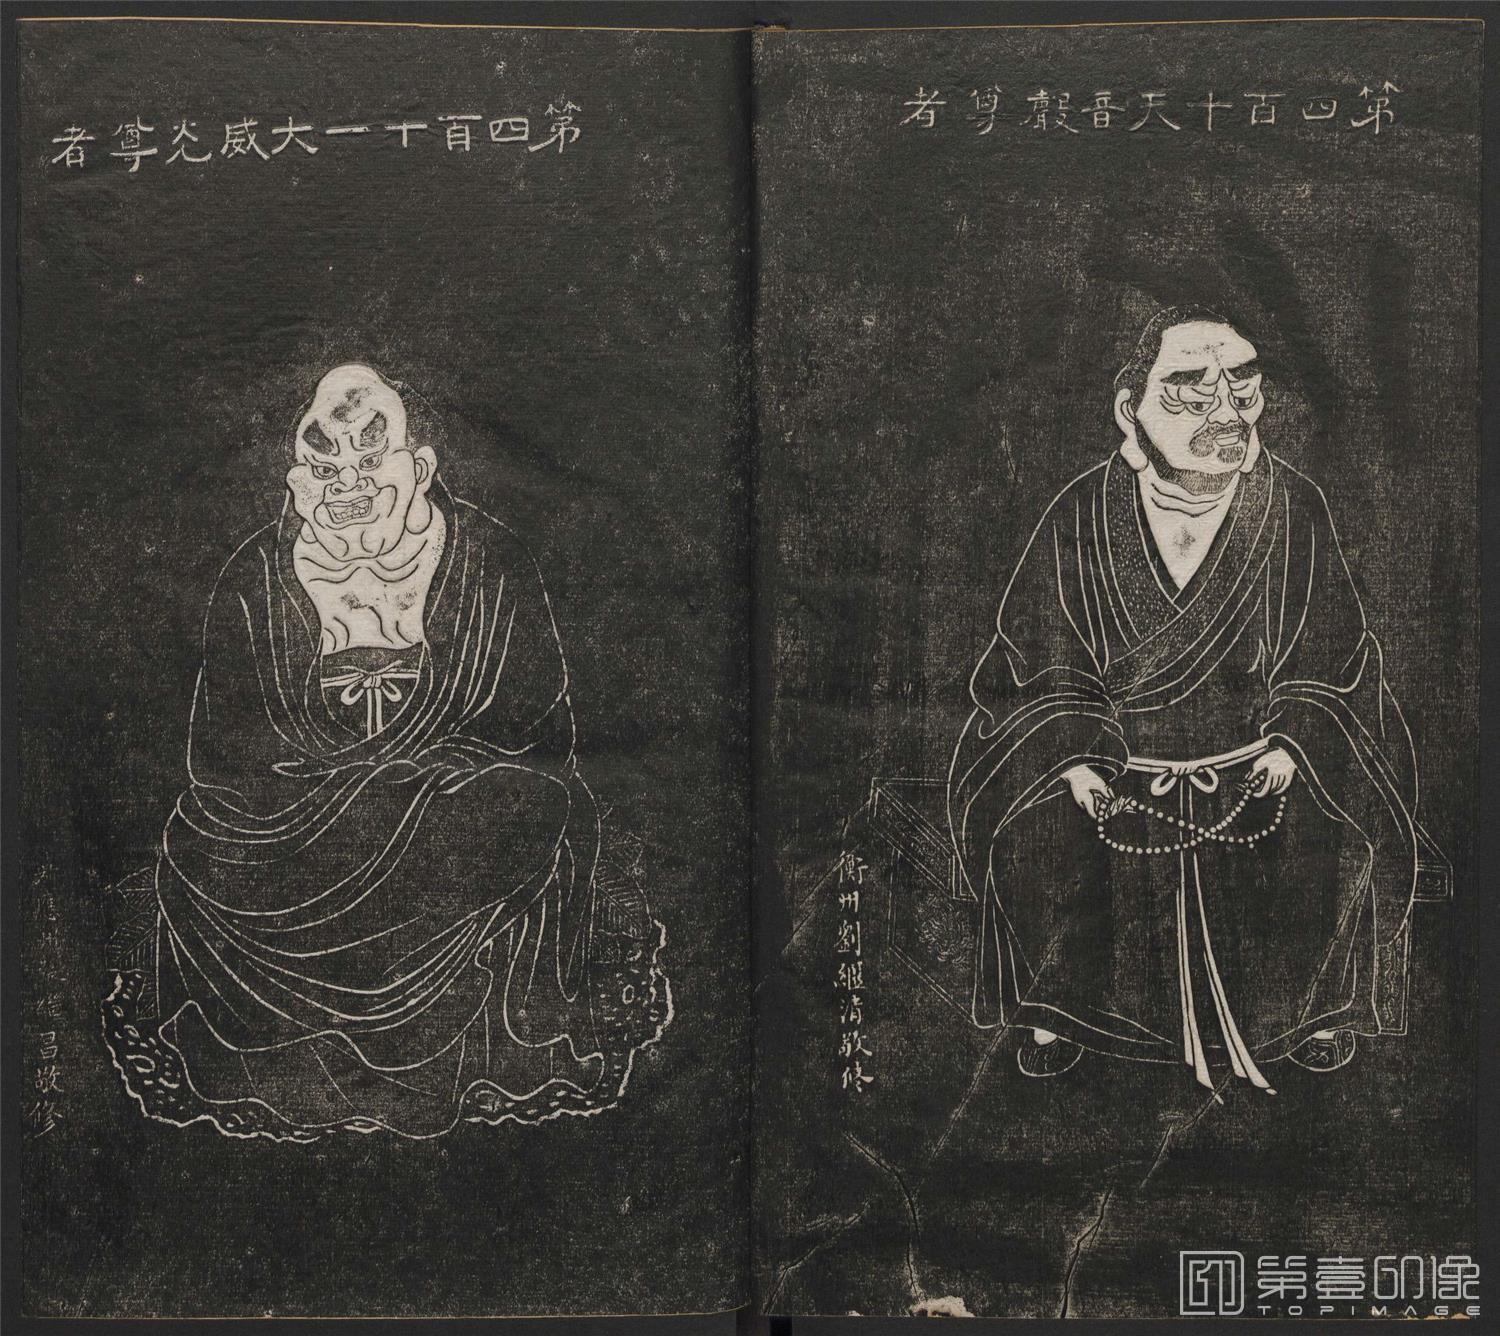 第四百十天音聲尊者
衡州劉繼清敬修
第四百十一大威光尊者
昌敬修
第壹印像
TOPIMAGE